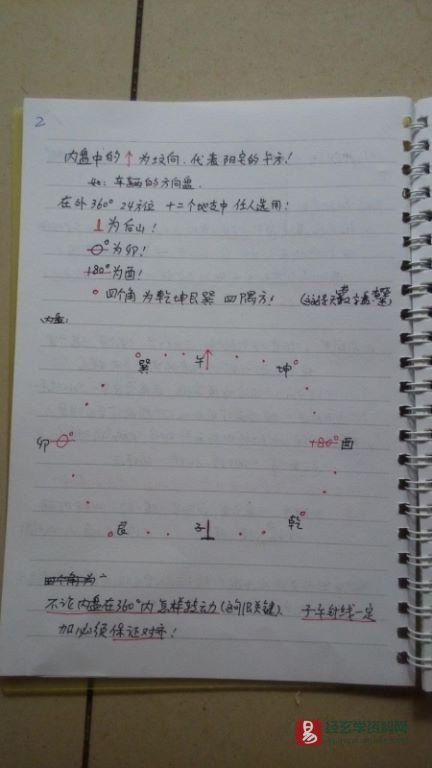 2
内盘中的↑为坟向,代表阳宅的卡方!
如:车辆的方向盘
在外360° 24方位 十二个地支中 任人选用!
⊥为后山!
0°为卯!
180°为酉!
°四个角为乾坤艮巽 四隅方!
内盘:
巽 午 坤
卯 0° 180° 酉
艮 子 乾
四个角为
不论内盘在360°内怎样转动(这句很关键)、子午针线一定
加必须保证对齐!
易 经玄学资料网